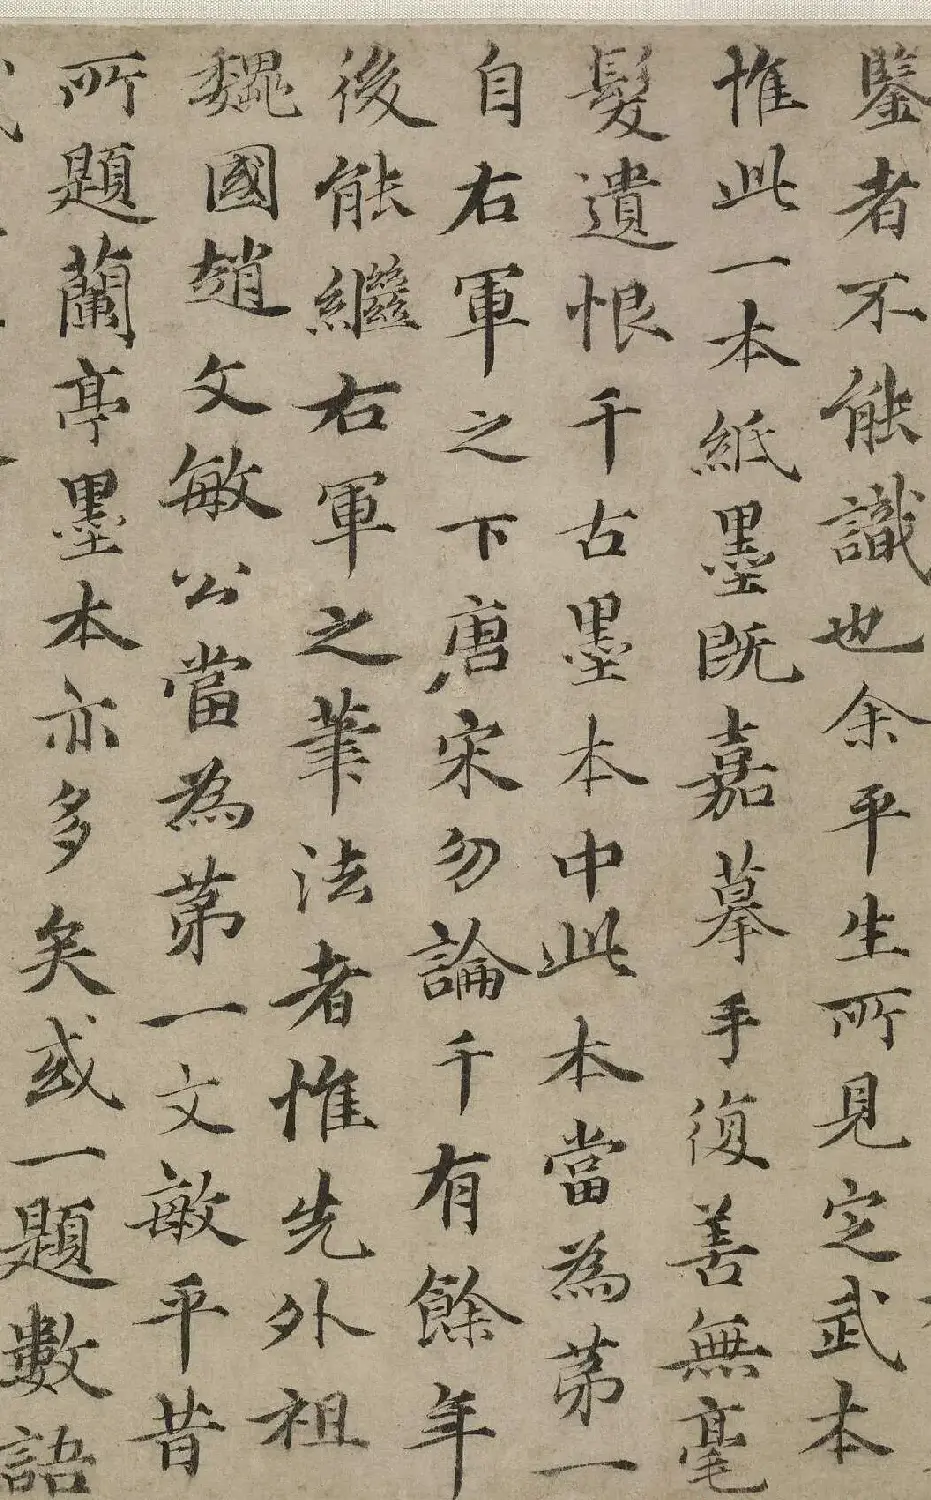 鑒者不能識也余平生所見定武本
惟此一本紙墨既嘉摹手復善無毫
髮遺恨千古墨本中此本當為苐一
自右軍之下唐宋勿論千有餘年
後能繼右軍之筆法者惟先外祖
魏國趙文敏公當為苐一文敏平昔
所題蘭亭墨本亦多矣或一題數語